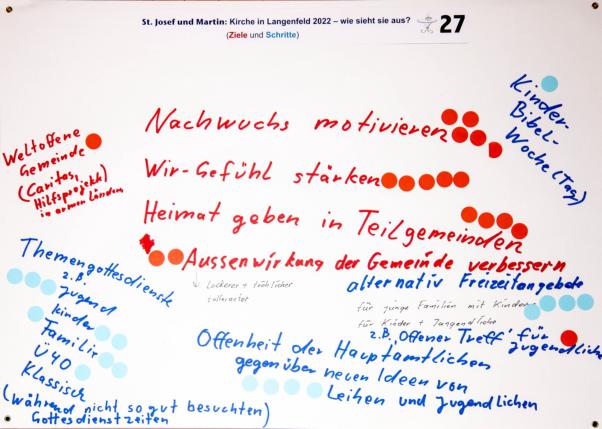 St. Josef und Martin: Kirche in Langenfeld 2022 – wie sieht sie aus?
(Ziele und Schritte)
27
Kinder-
Bibel-
Woche (Tag)
Nachwuchs motivieren
Weltoffene
Gemeinde
(Caritas,
Hilfsprojekte
in armen Ländern
Wir-Gefühl stärken
Heimat geben in Teilgemeinden
Aussenwirkung der Gemeinde verbessern
↳ Lockerer + fröhlicher
toleranter
alternativ Freizeitangebote
für junge Familien mit Kinder
für Kinder + Jugendliche
z.B. "Offener Treff" für
Jugendliche
Themengottesdienste
z.B.
Jugend
Kinder
Familie
Ü40
Klassisch
(während nicht so gut besuchten)
Gottesdienstzeiten
Offenheit der Hauptamtlichen
gegenüber neuen Ideen von
Leihen und Jugendlichen